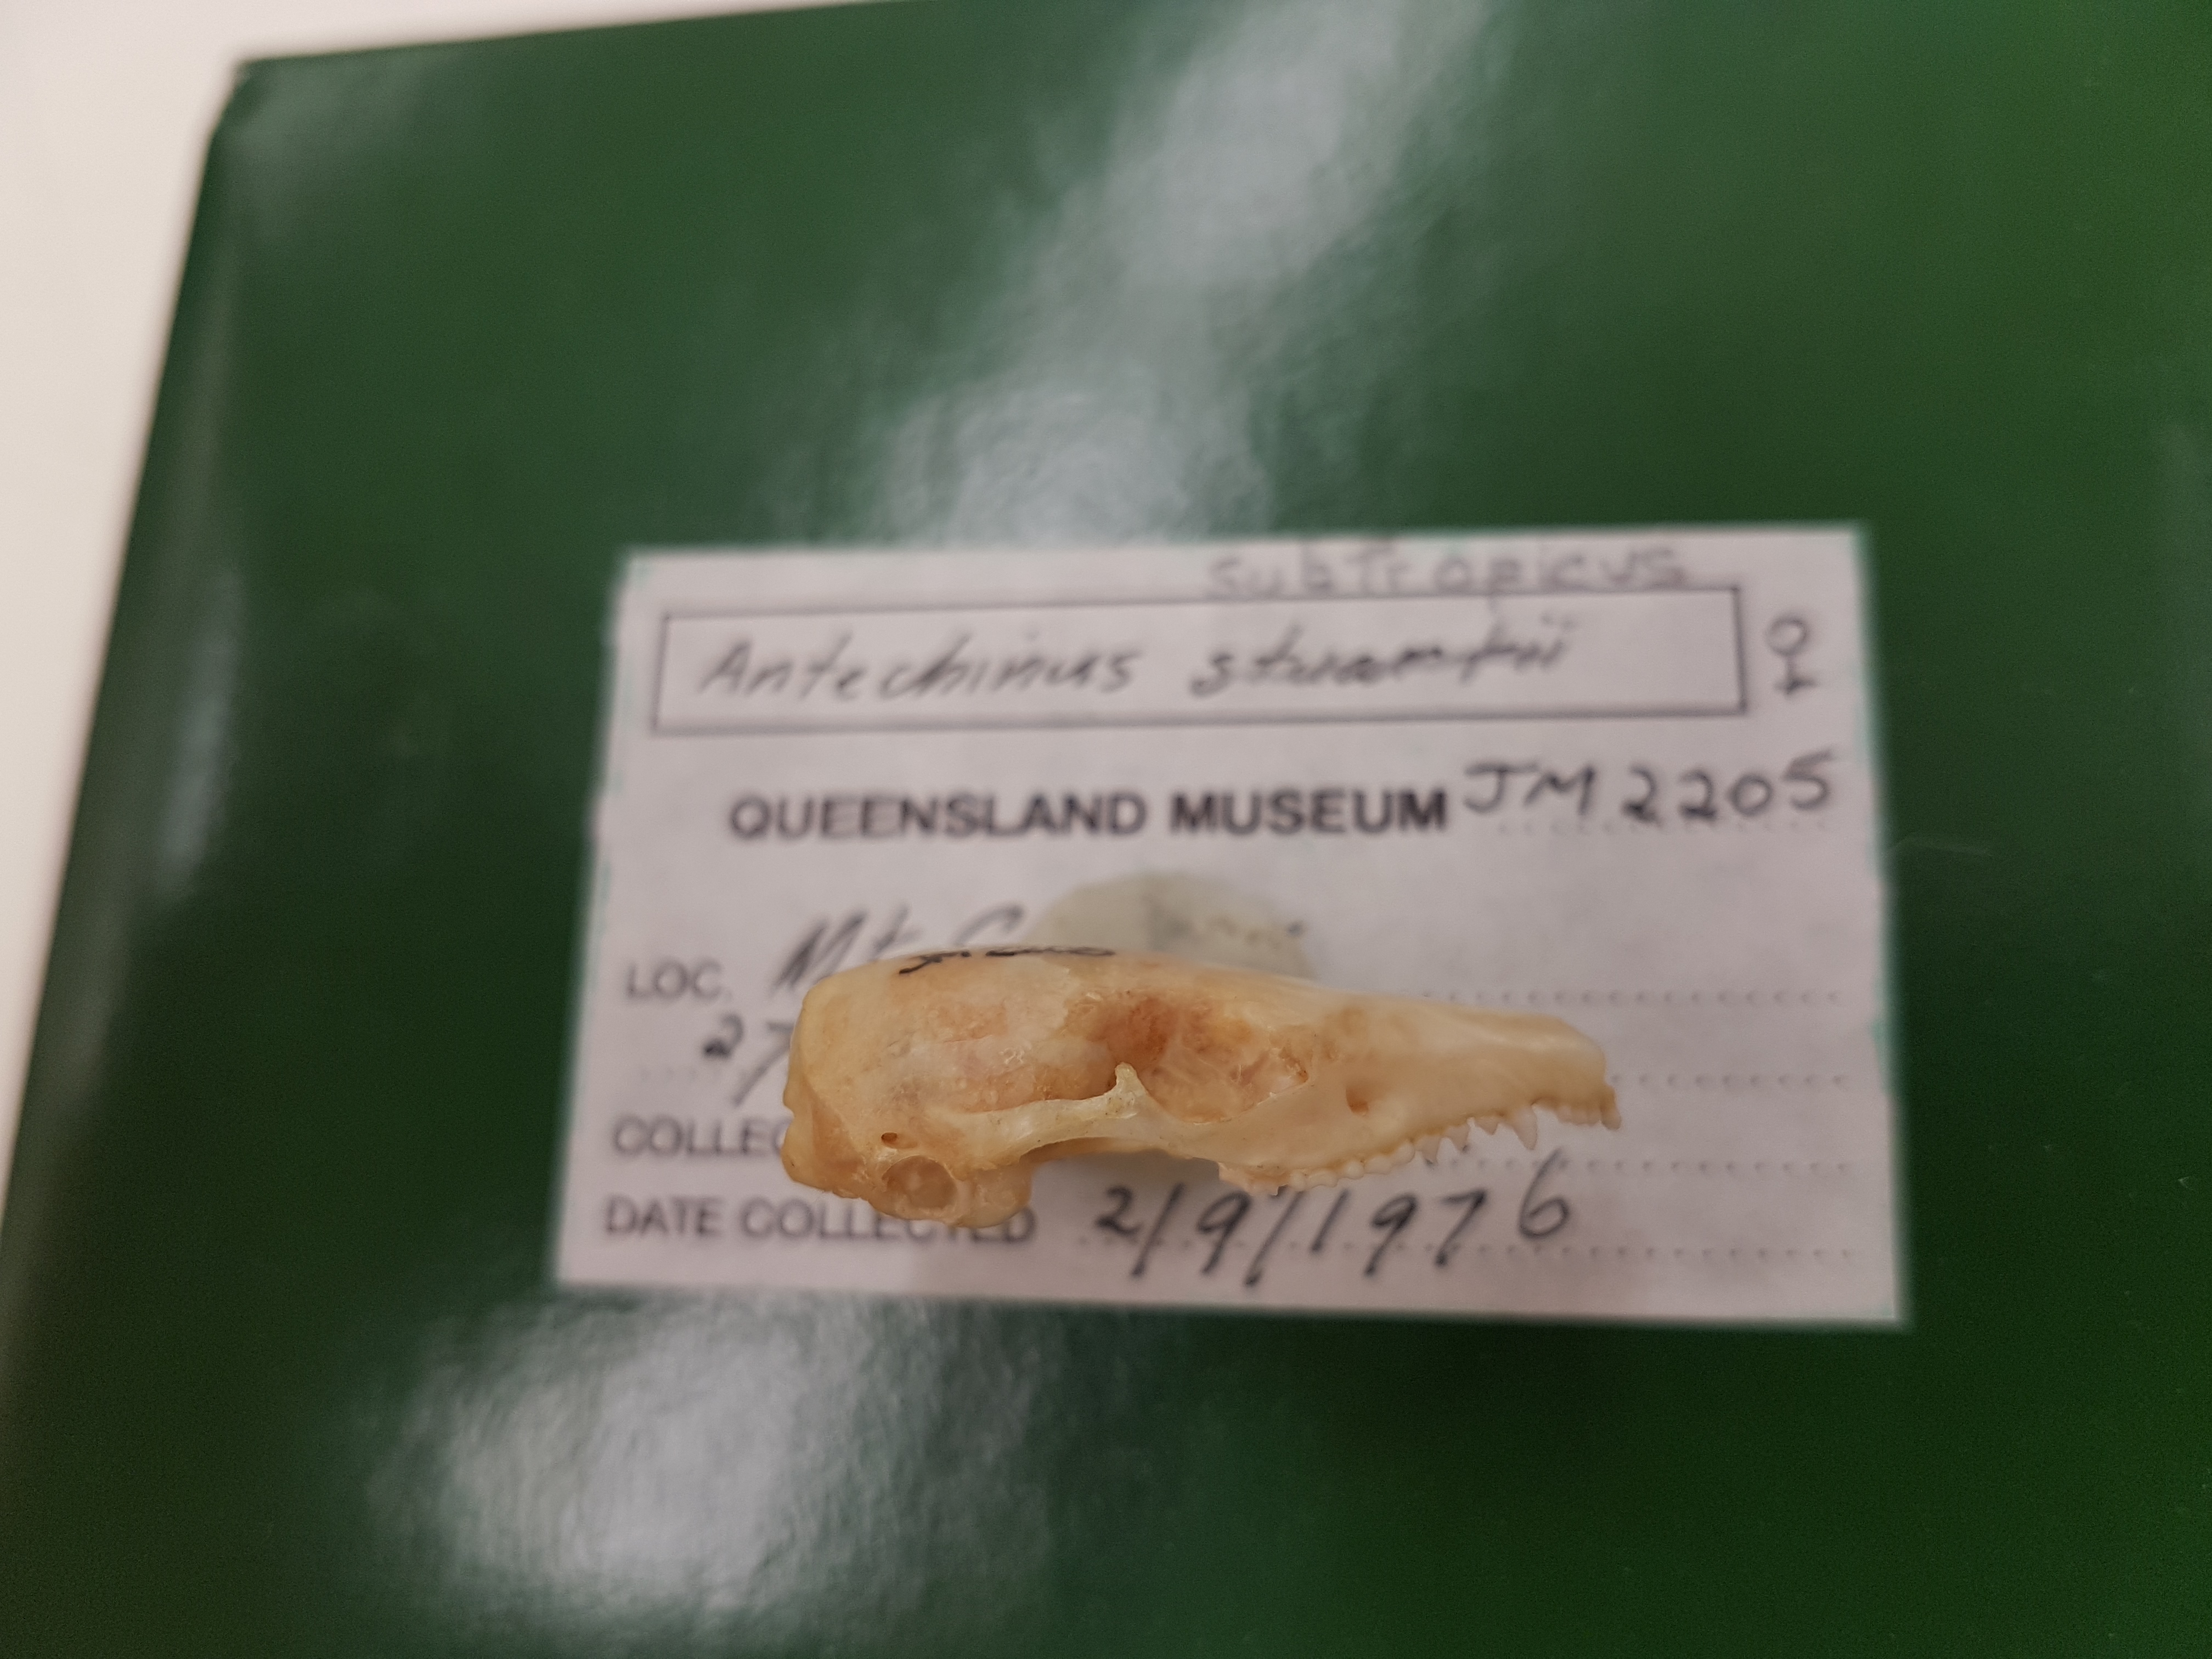 subtropicus
Antechinus stuartii ♀
QUEENSLAND MUSEUM JM 2205
LOC. Mt. G
27
COLLEC
DATE COLLECTED 2/9/1976